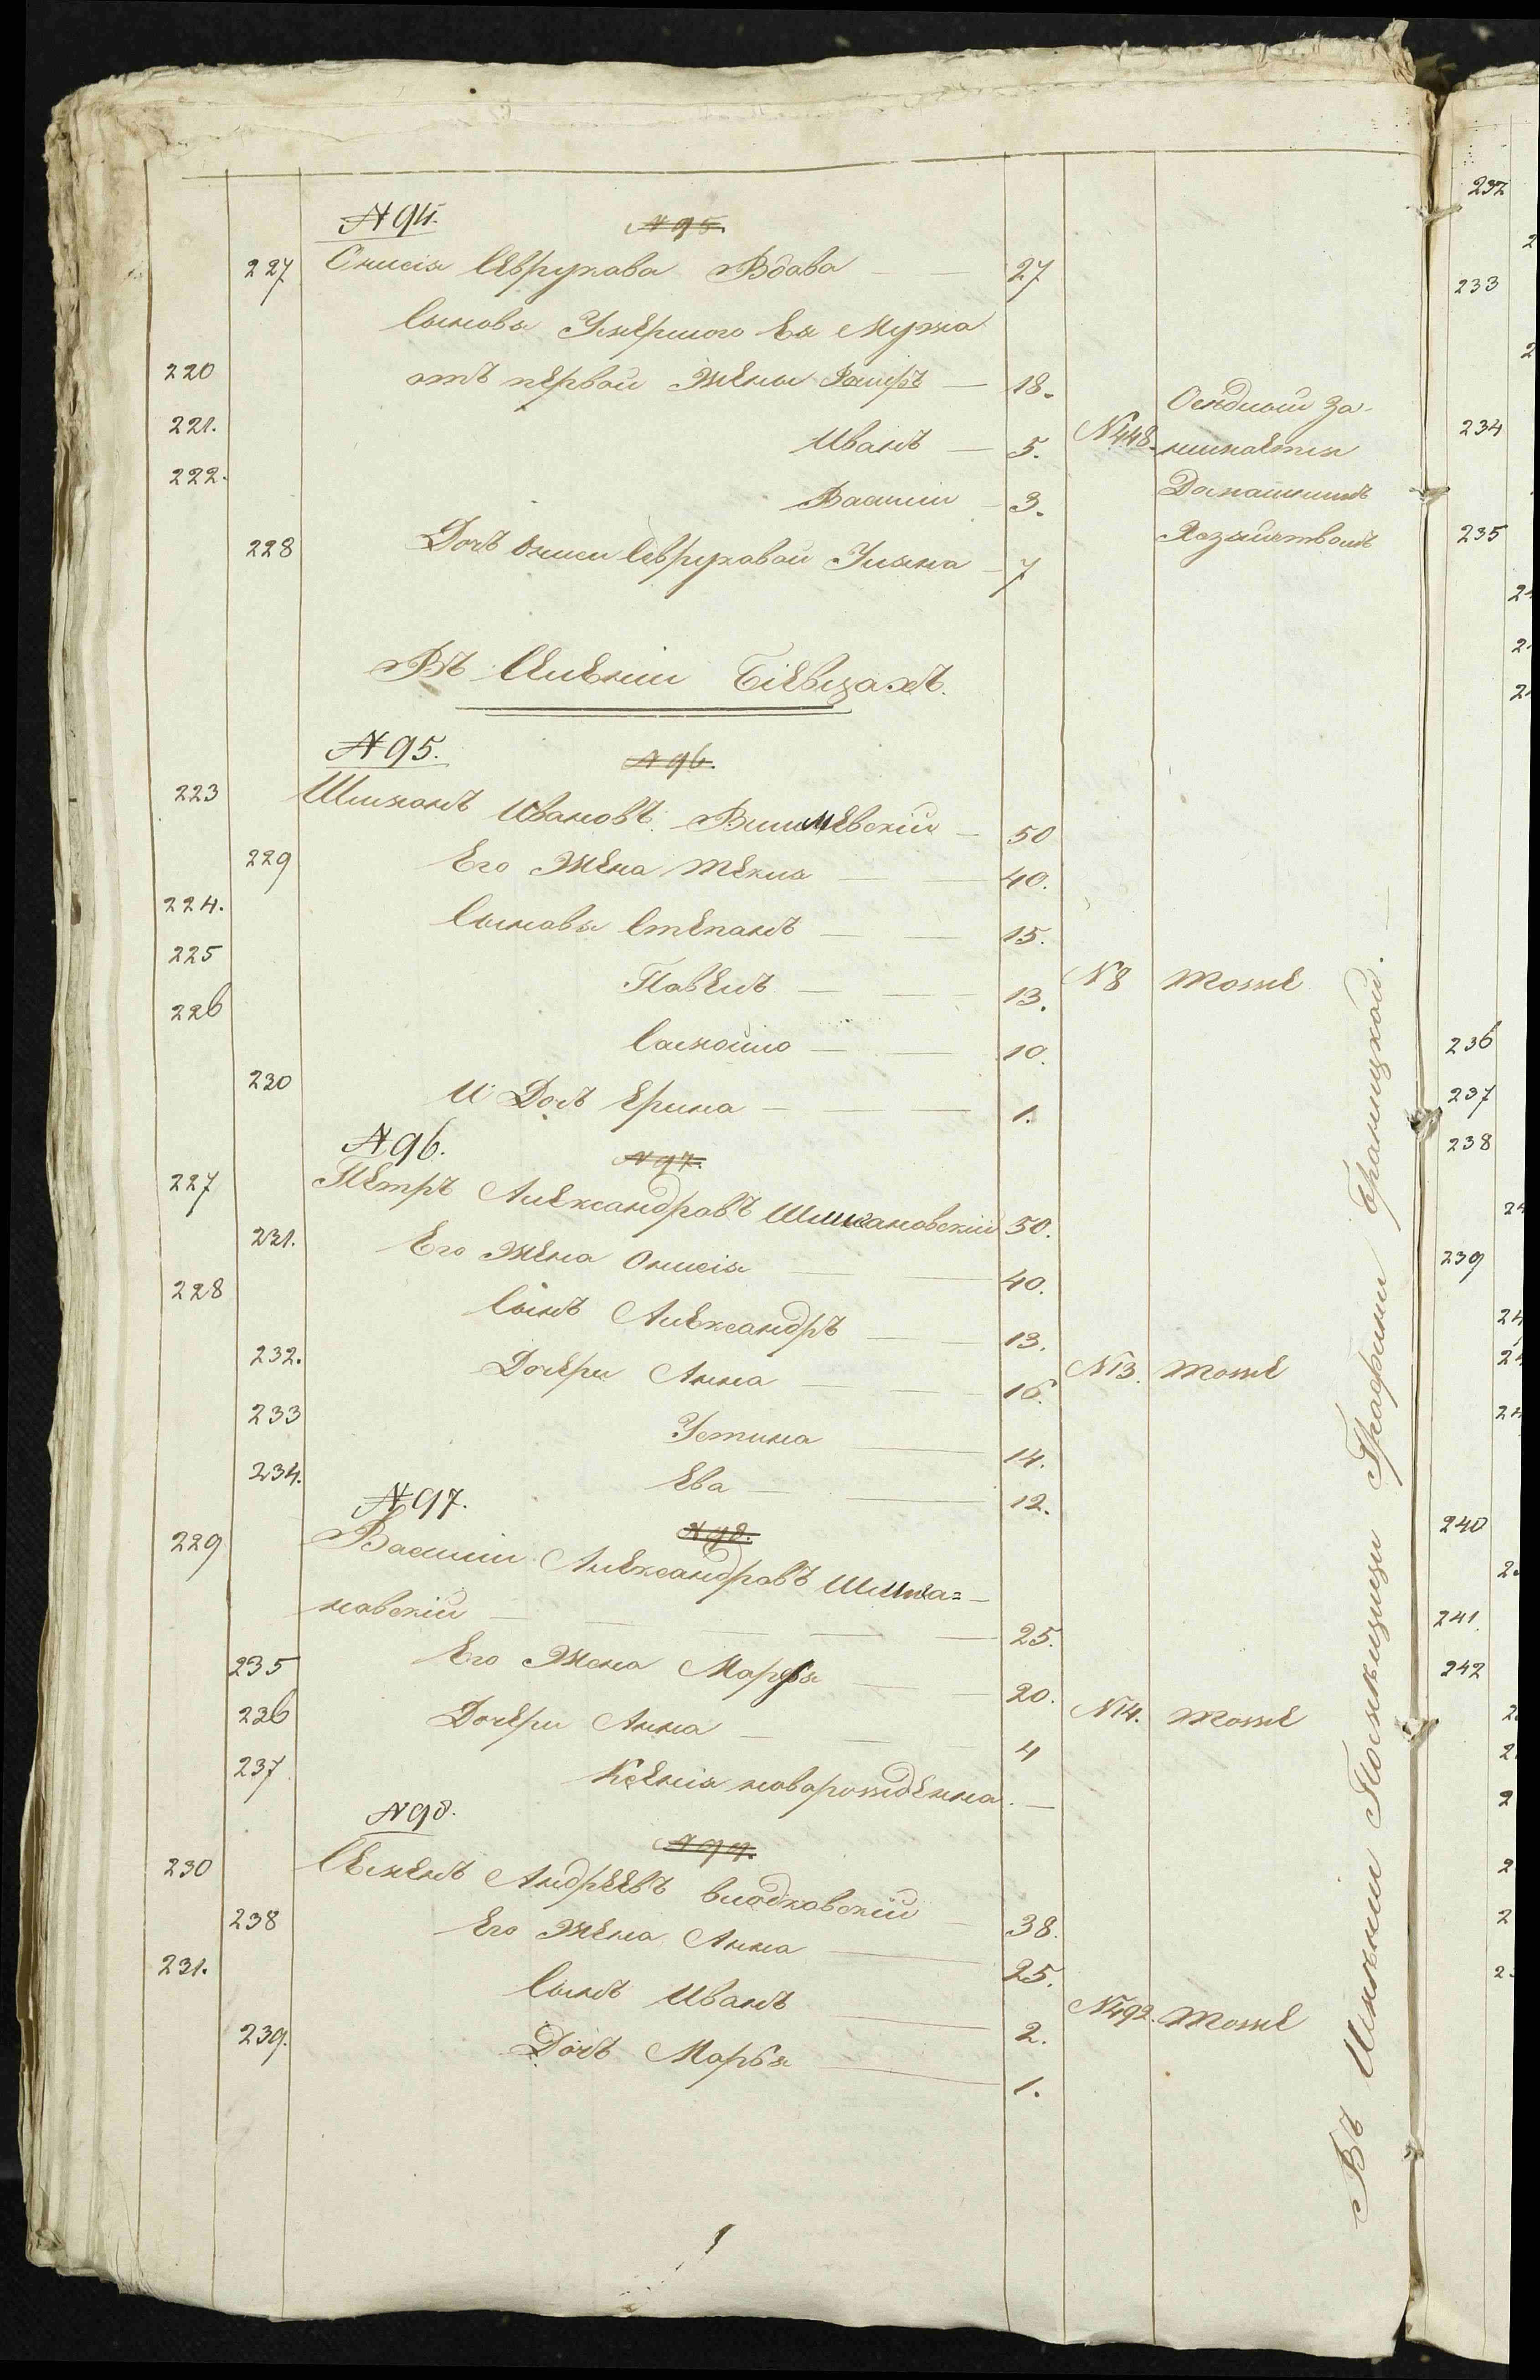 N 94. N 95.
227 Онисія Севрукова Вдова — 27
Сыновья Умершого Ея Мужа
220 отъ первой Жены — 18.
221. Иванъ — 5. N 448.
222. Василій — 3.
228 Дочь Онисіи Севруковой Ульяна — 7
Осѣдлый за-
нимается
Домашнимъ
Хозяйствомъ
Въ Селеніи Біевцахъ.
N 95. N 96.
223 Шимонъ Ивановъ Вишневскій — 50
229 Его Жена Текля — 40.
224. Сыновья Степанъ — 15.
225 Павелъ — 13. N 8 тоже
226 Самойло — 10.
230 И Дочь Ерина — 1.
N 96. N 97.
227 Петръ Александровъ Шимановскій 50.
231. Его Жена Онисія — 40.
228 Сынъ Александръ — 13.
232. Дочери Анна — 16. N 13. тоже
233 Устина — 14.
234. Ева — 12.
N 97. N 98.
229 Василій Александровъ Шима=
новскій — 25.
235 Его Жена Марфа — 20.
236 Дочери Анна — 4 N 14. тоже
237 Ксенія новорожденна. —
N 98. N 99.
230 Семенъ Андреевъ — 38.
238 Его Жена Анна — 25.
231. Сынъ Иванъ — 2. N 492. тоже
239. Дочь Марья — 1.
Въ Имѣніи Помѣщицы Графини Браницкой.
232
233
234
235
236
237
238
239
240
241.
242